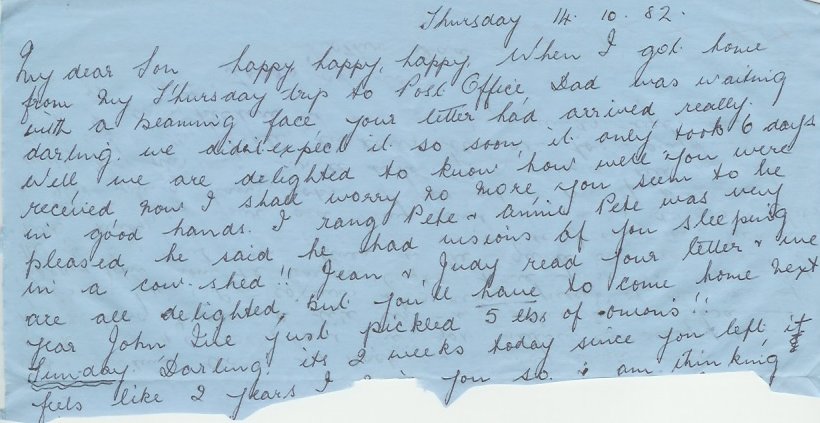 Thursday 14. 10. 82.
My dear Son happy, happy, happy, When I got home
from my Thursday trip to Post Office Dad was waiting
with a beaming face your letter had arrived, really
darling. we didn't expect it so soon, it only took 6 days
Well we are delighted to know how well you were
received now I shall worry no more, you seem to be
in good hands. I rang Pete & Annie Pete was very
pleased, he said he had visions of you sleeping
in a cow-shed!! Jean & Judy read your letter & we
are all delighted, but you'll have to come home next
year John I've just pickled 5 lbs of onions!!
Sunday Darling its 2 weeks today since you left it
feels like 2 years I you so & am thinking